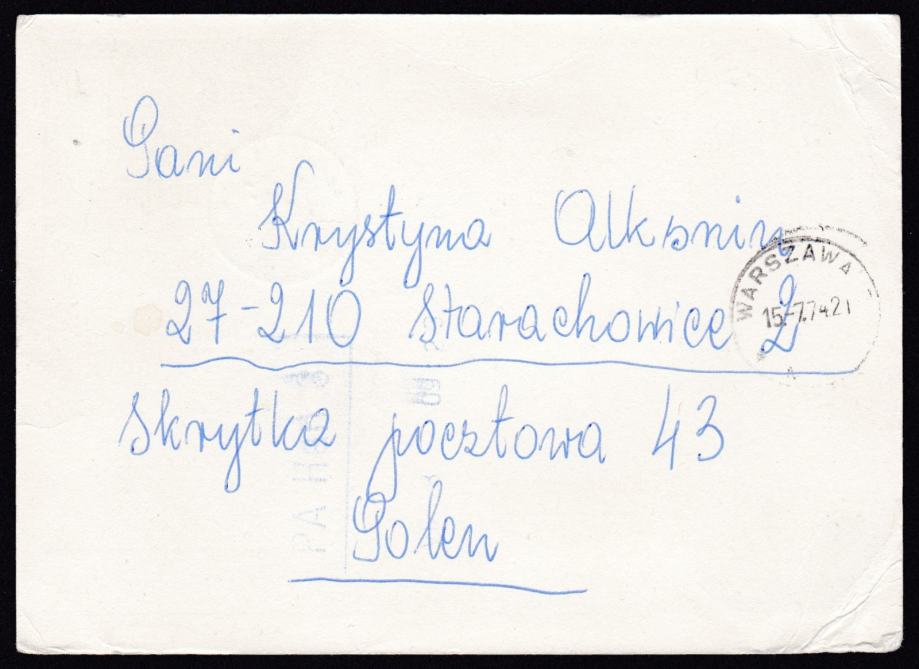 Pani
Krystyna Alksnin
27-210 Starachowice 2
WARSZAWA
15.-7.74 21
skrytka pocztowa 43
Polen